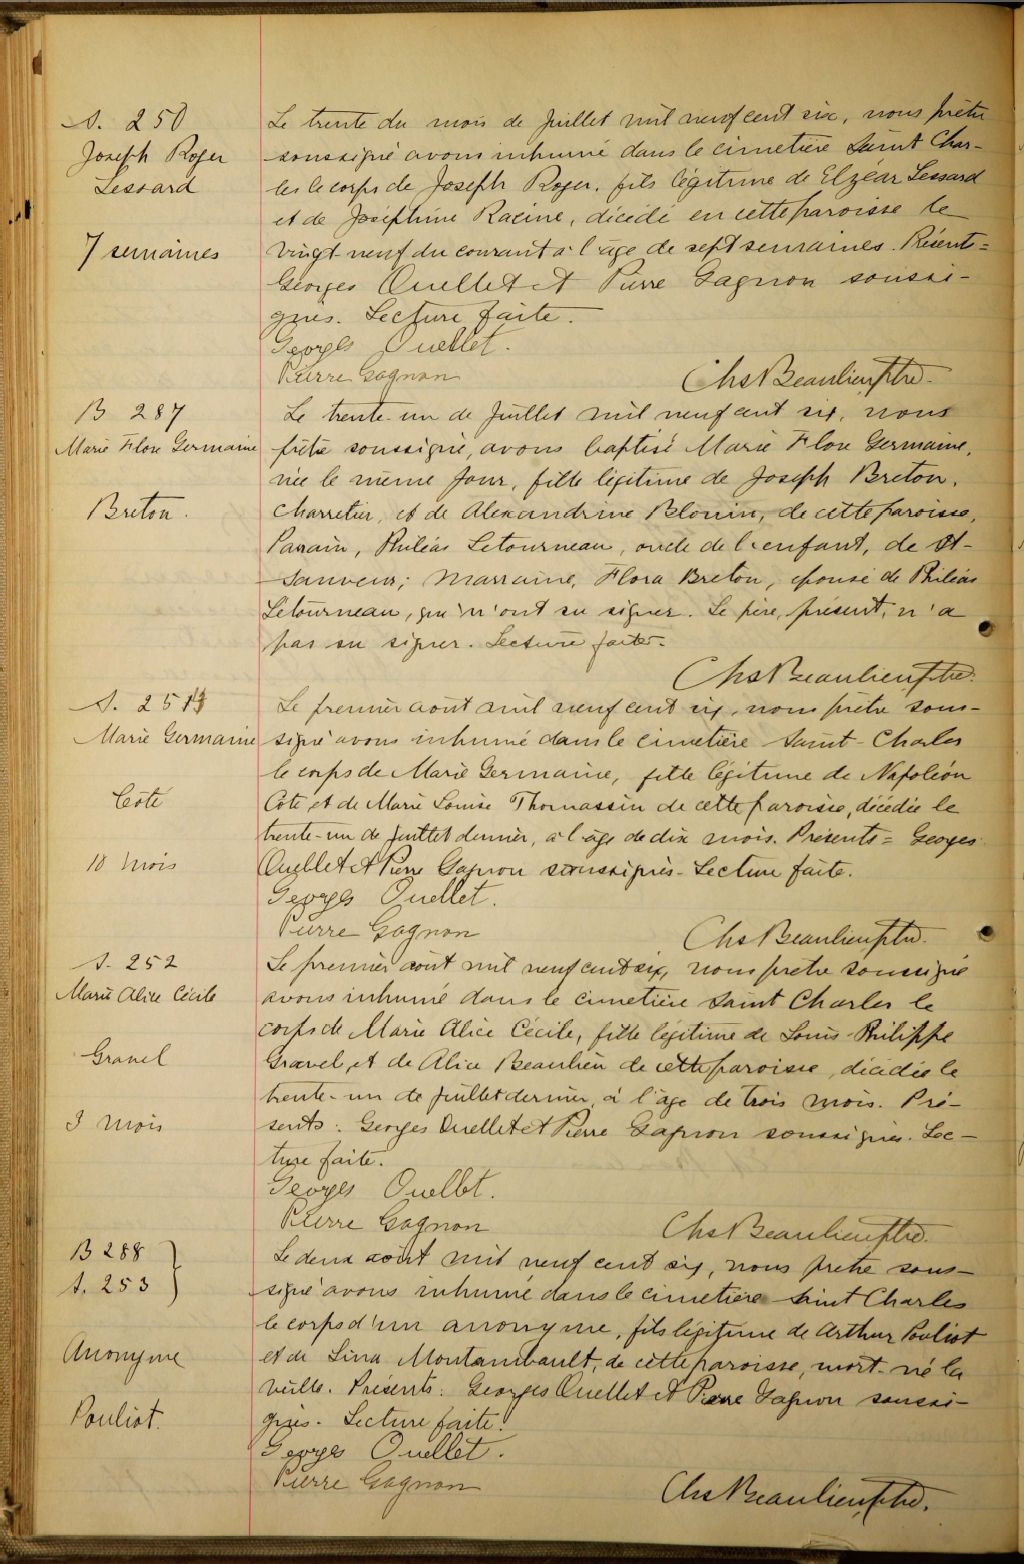 S. 250
Joseph Roger
Lessard
7 semaines
Le trente du mois de Juillet mil neuf cent six, nous prêtre
soussigné avons inhumé dans le cimetière Saint Char-
les le corps de Joseph Roger, fils légitime de Elzéar Lessard
et de Joséphine Racine, décédé en cette paroisse le
vingt-neuf du courant à l'âge de sept semaines. Présents =
Georges Ouellet et Pierre Gagnon soussi-
gnés. Lecture faite.
Georges Ouellet.
Pierre Gagnon
Chs Beaulieu, ptre.
B 287
Marie Flore Germaine
Breton.
Le trente-un de Juillet mil neuf cent six, nous
prêtre soussigné, avons baptisé Marie Flore Germaine,
née le même jour, fille légitime de Joseph Breton,
charretier, et de Alexandrine Blouin, de cette paroisse,
Parrain, Philéas Letourneau, oncle de l'enfant, de St-
Sauveur; Marraine, Flora Breton, épouse de Philéas
Létourneau, qui n'ont su signer. Le père, présent, n'a
pas su signer. Lecture faite.
Chs Beaulieu, ptre.
S. 251
Marie Germaine
Côté
10 mois
Le premier août mil neuf cent six, nous prêtre sous-
signé avons inhumé dans le cimetière Saint-Charles
le corps de Marie Germaine, fille légitime de Napoléon
Côté et de Marie Louise Thomassin de cette paroisse, décédée le
trente-un de Juillet dernier, à l'âge de dix mois. Présents = Georges
Ouellet et Pierre Gagnon soussignés - Lecture faite.
Georges Ouellet.
Pierre Gagnon
Chs Beaulieu, ptre.
S. 252
Marie Alice Cécile
Gravel
3 mois
Le premier août mil neuf cent six, nous prêtre soussigné
avons inhumé dans le cimetière Saint Charles le
corps de Marie Alice Cécile, fille légitime de Louis-Philippe
Gravel, et de Alice Beaulieu de cette paroisse, décédée le
trente-un de Juillet dernier, à l'âge de trois mois. Pré-
sents: Georges Ouellet et Pierre Gagnon soussignés. Lec-
ture faite.
Georges Ouellet.
Pierre Gagnon
Chs Beaulieu, ptre.
B 288
S. 253
Anonyme
Pouliot.
Le deux août mil neuf cent six, nous prêtre sous-
signé avons inhumé dans le cimetière Saint Charles
le corps d'un anonyme, fils légitime de Arthur Pouliot
et de Lina Montambault, de cette paroisse, mort-né la
veille. Présents: Georges Ouellet et Pierre Gagnon soussi-
gnés. Lecture faite.
Georges Ouellet.
Pierre Gagnon
Chs Beaulieu, ptre.